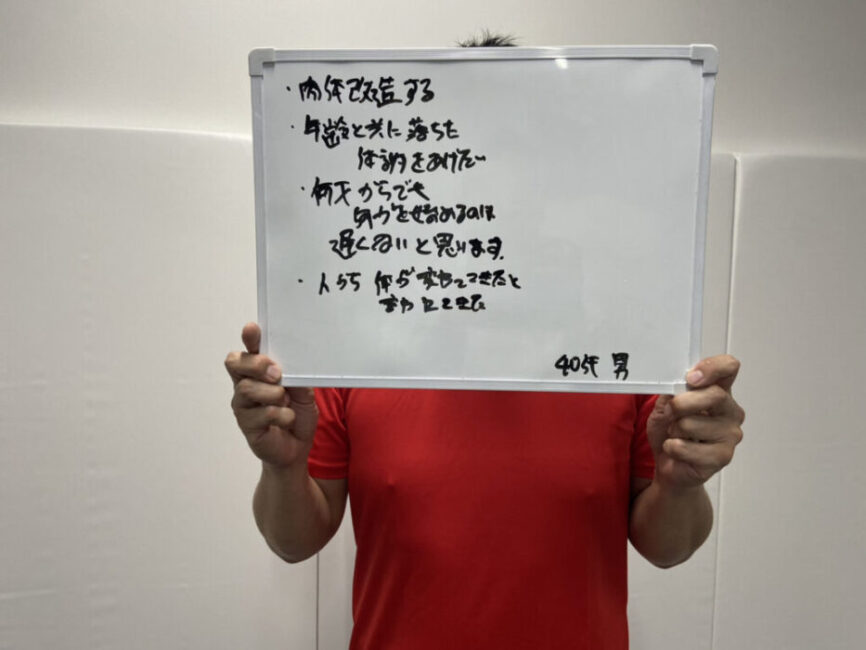 ・肉体改造する
・年齢と共に落ちた
体力をあげたい
・何才からでも
を始めるのは
遅くないと思います。
・人から 体が変わってきたと
40代 男